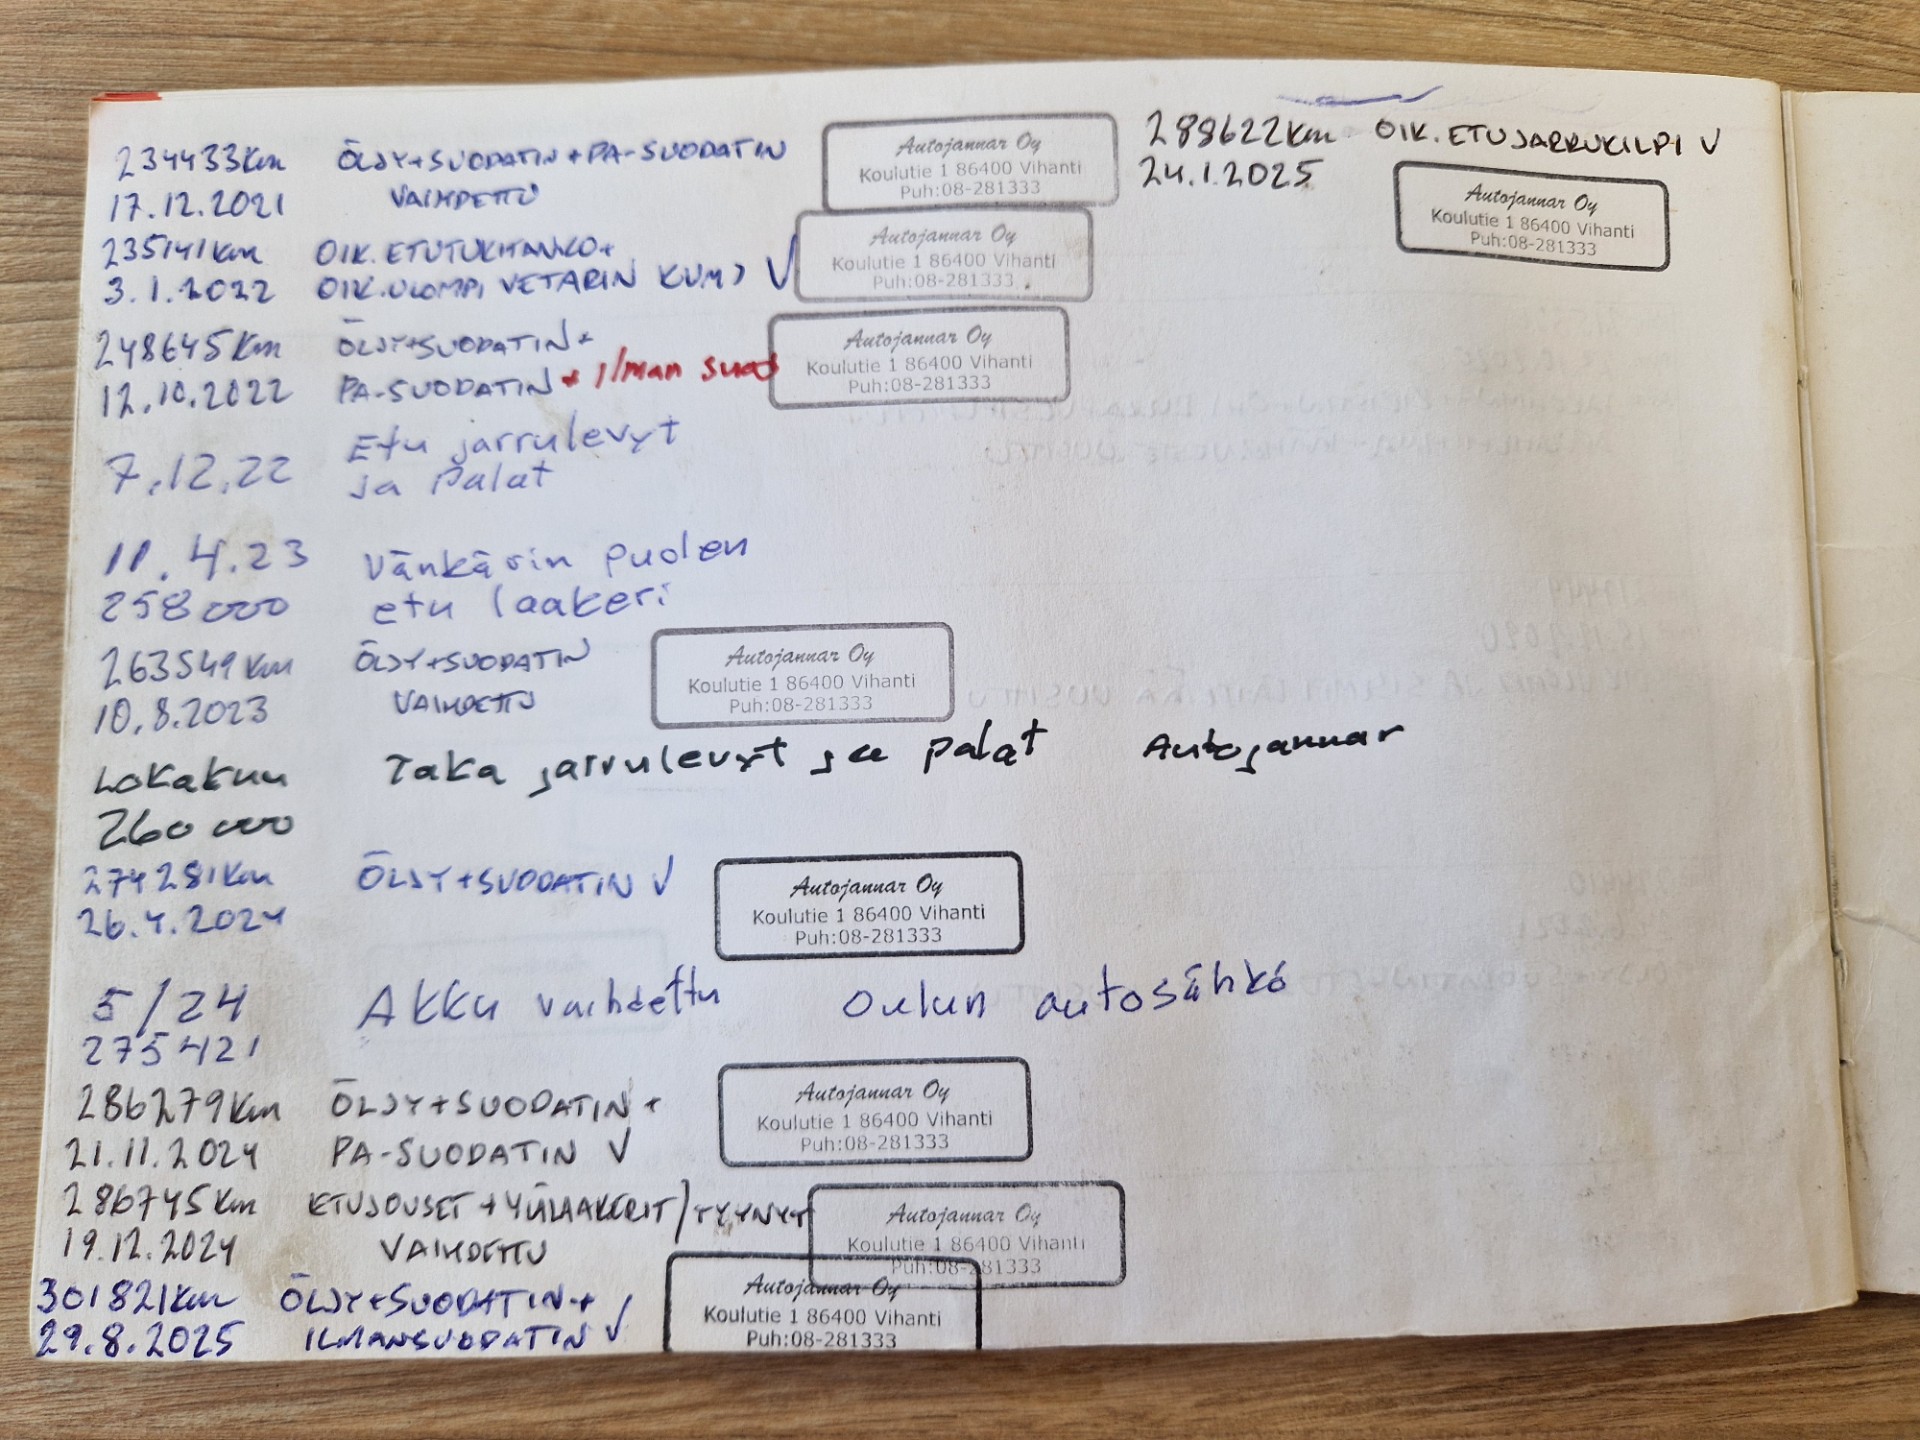 234433km ÖLJY+SUODATIN+PA-SUODATIN
17.12.2021 VAIHDETTU
Autojannar Oy
Koulutie 1 86400 Vihanti
Puh:08-281333
235141km OIK.ETUTUKITANKO+
3.1.2022 OIK.ULOMPI VETARIN KUMI V
Autojannar Oy
Koulutie 1 86400 Vihanti
Puh:08-281333
248645km ÖLJY+SUODATIN+
12.10.2022 PA-SUODATIN + Ilman suod
Autojannar Oy
Koulutie 1 86400 Vihanti
Puh:08-281333
7.12.22 Etu jarrulevyt
ja Palat
11.4.23 Vänkärin puolen
258000 etu laakeri
263549km ÖLJY+SUODATIN
10.8.2023 VAIHDETTU
Autojannar Oy
Koulutie 1 86400 Vihanti
Puh:08-281333
Lokakuu Taka jarrulevyt ja palat Autojannar
260000
274281km ÖLJY+SUODATIN V
26.4.2024
Autojannar Oy
Koulutie 1 86400 Vihanti
Puh:08-281333
5/24 Akku vaihdettu Oulun autosähkö
275421
286279km ÖLJY+SUODATIN+
21.11.2024 PA-SUODATIN V
Autojannar Oy
Koulutie 1 86400 Vihanti
Puh:08-281333
286745km ETUJOUSET+YLÄLAAKERIT/TYYNYT
19.12.2024 VAIHDETTU
Autojannar Oy
Koulutie 1 86400 Vihanti
Puh:08-281333
301821km ÖLJY+SUODATIN+
29.8.2025 ILMANSUODATIN V
Autojannar Oy
Koulutie 1 86400 Vihanti
Puh:08-281333
288622km OIK.ETUJARRUKILPI V
24.1.2025
Autojannar Oy
Koulutie 1 86400 Vihanti
Puh:08-281333